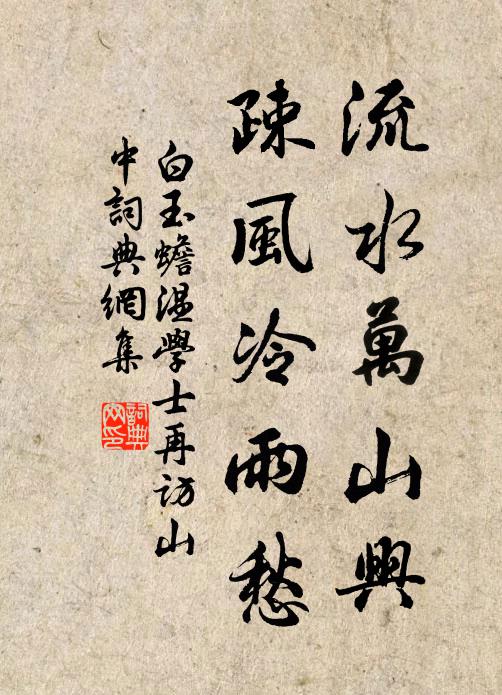 流水萬山興
疎風冷雨愁
白玉蟾温學士再訪山
中詞典網集
詞典
网印